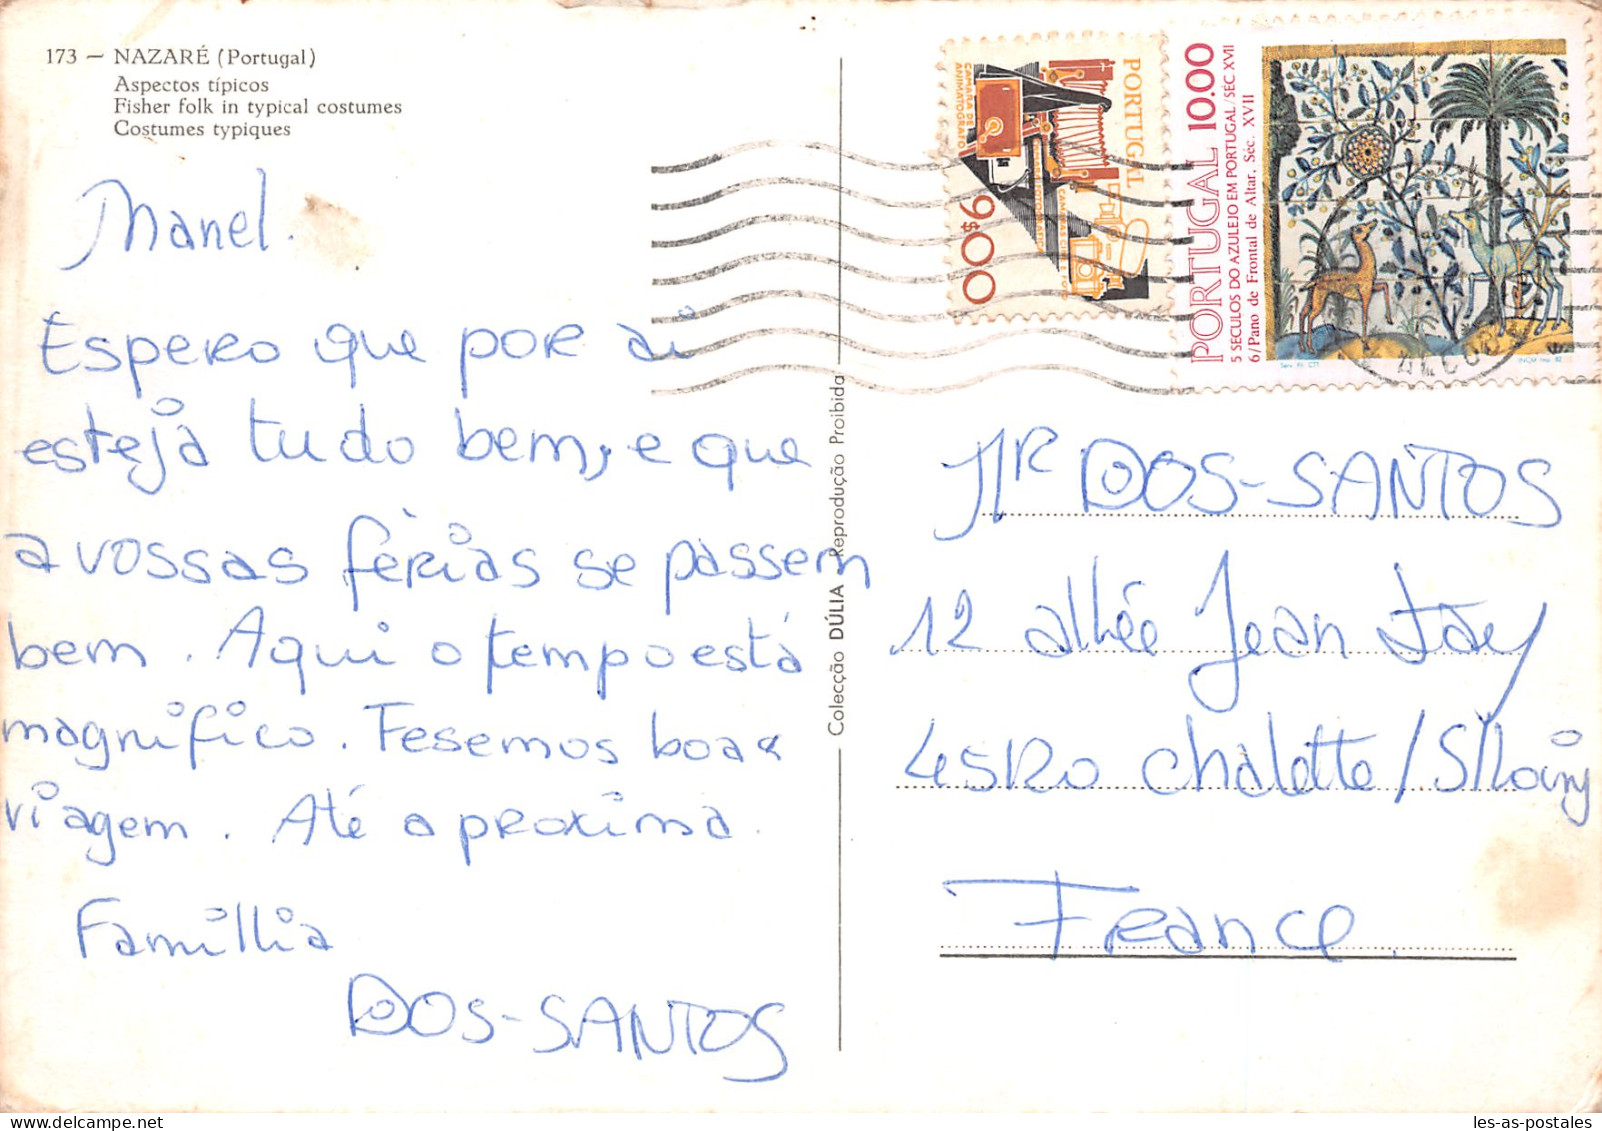 173 — NAZARÉ (Portugal)
Aspectos típicos
Fisher folk in typical costumes
Costumes typiques
Manel.
Espero que por aí
esteja tudo bem, e que
a vossas férias se passem
bem. Aqui o tempo está
magnifico. Fesemos boas
viagem. Até a proxima.
Famillia
DOS-SANTOS
Colecção DÚLIA - Reprodução Proibida
PORTUGAL
CÂMARA DE
ANIMATÓGRAFO
9$00
PORTUGAL 10.00
5 SECULOS DO AZULEJO EM PORTUGAL/SEC XVII
6/Pano de Frontal de Altar, Séc. XVII
INCM Imp. 82
Mr DOS-SANTOS
12 allée Jean Jay
45120 chalette/S/Loing
France.
les-as-postales